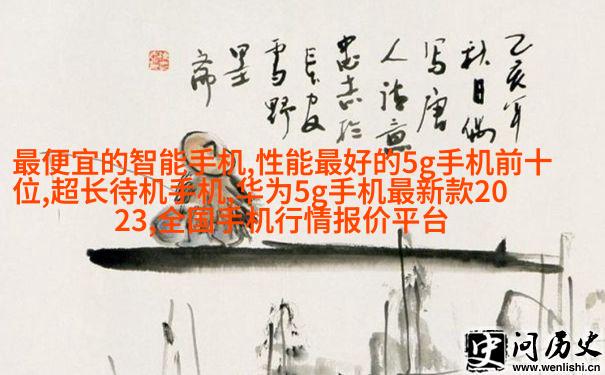 乙亥年
秋日偶
写唐
人诗意
忠志於
长安
雪野
墨
斋
最便宜的智能手机,性能最好的5g手机前十
位,超长待机手机,华为5g手机最新款20
23,全国手机行情报价平台
史问历史
www.wenlishi.cn